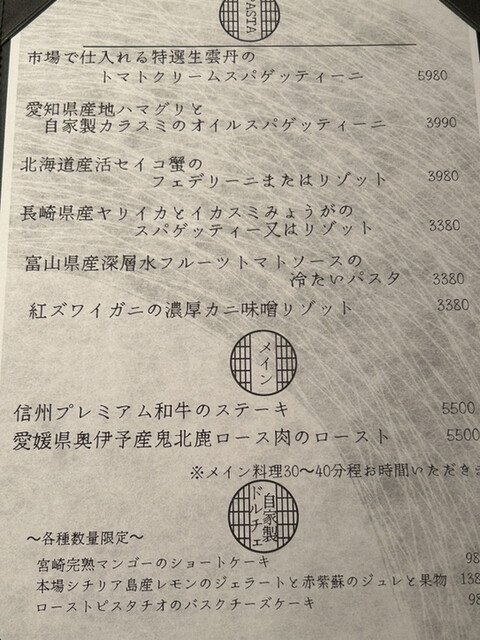 PASTA
市場で仕入れる特選生雲丹の
トマトクリームスパゲッティーニ 5980
愛知県産地ハマグリと
自家製カラスミのオイルスパゲッティーニ 3990
北海道産活セイコ蟹の
フェデリーニまたはリゾット 3980
長崎県産ヤリイカとイカスミみょうがの
スパゲッティー又はリゾット 3380
富山県産深層水フルーツトマトソースの
冷たいパスタ 3380
紅ズワイガニの濃厚カニ味噌リゾット 3380
メイン
信州プレミアム和牛のステーキ 5500
愛媛県奥伊予産鬼北鹿ロース肉のロースト 5500
※メイン料理30〜40分程お時間いただきま
自家製
ドルチェ
〜各種数量限定〜
宮崎完熟マンゴーのショートケーキ 98
本場シチリア島産レモンのジェラートと赤紫蘇のジュレと果物 138
ローストピスタチオのバスクチーズケーキ 98